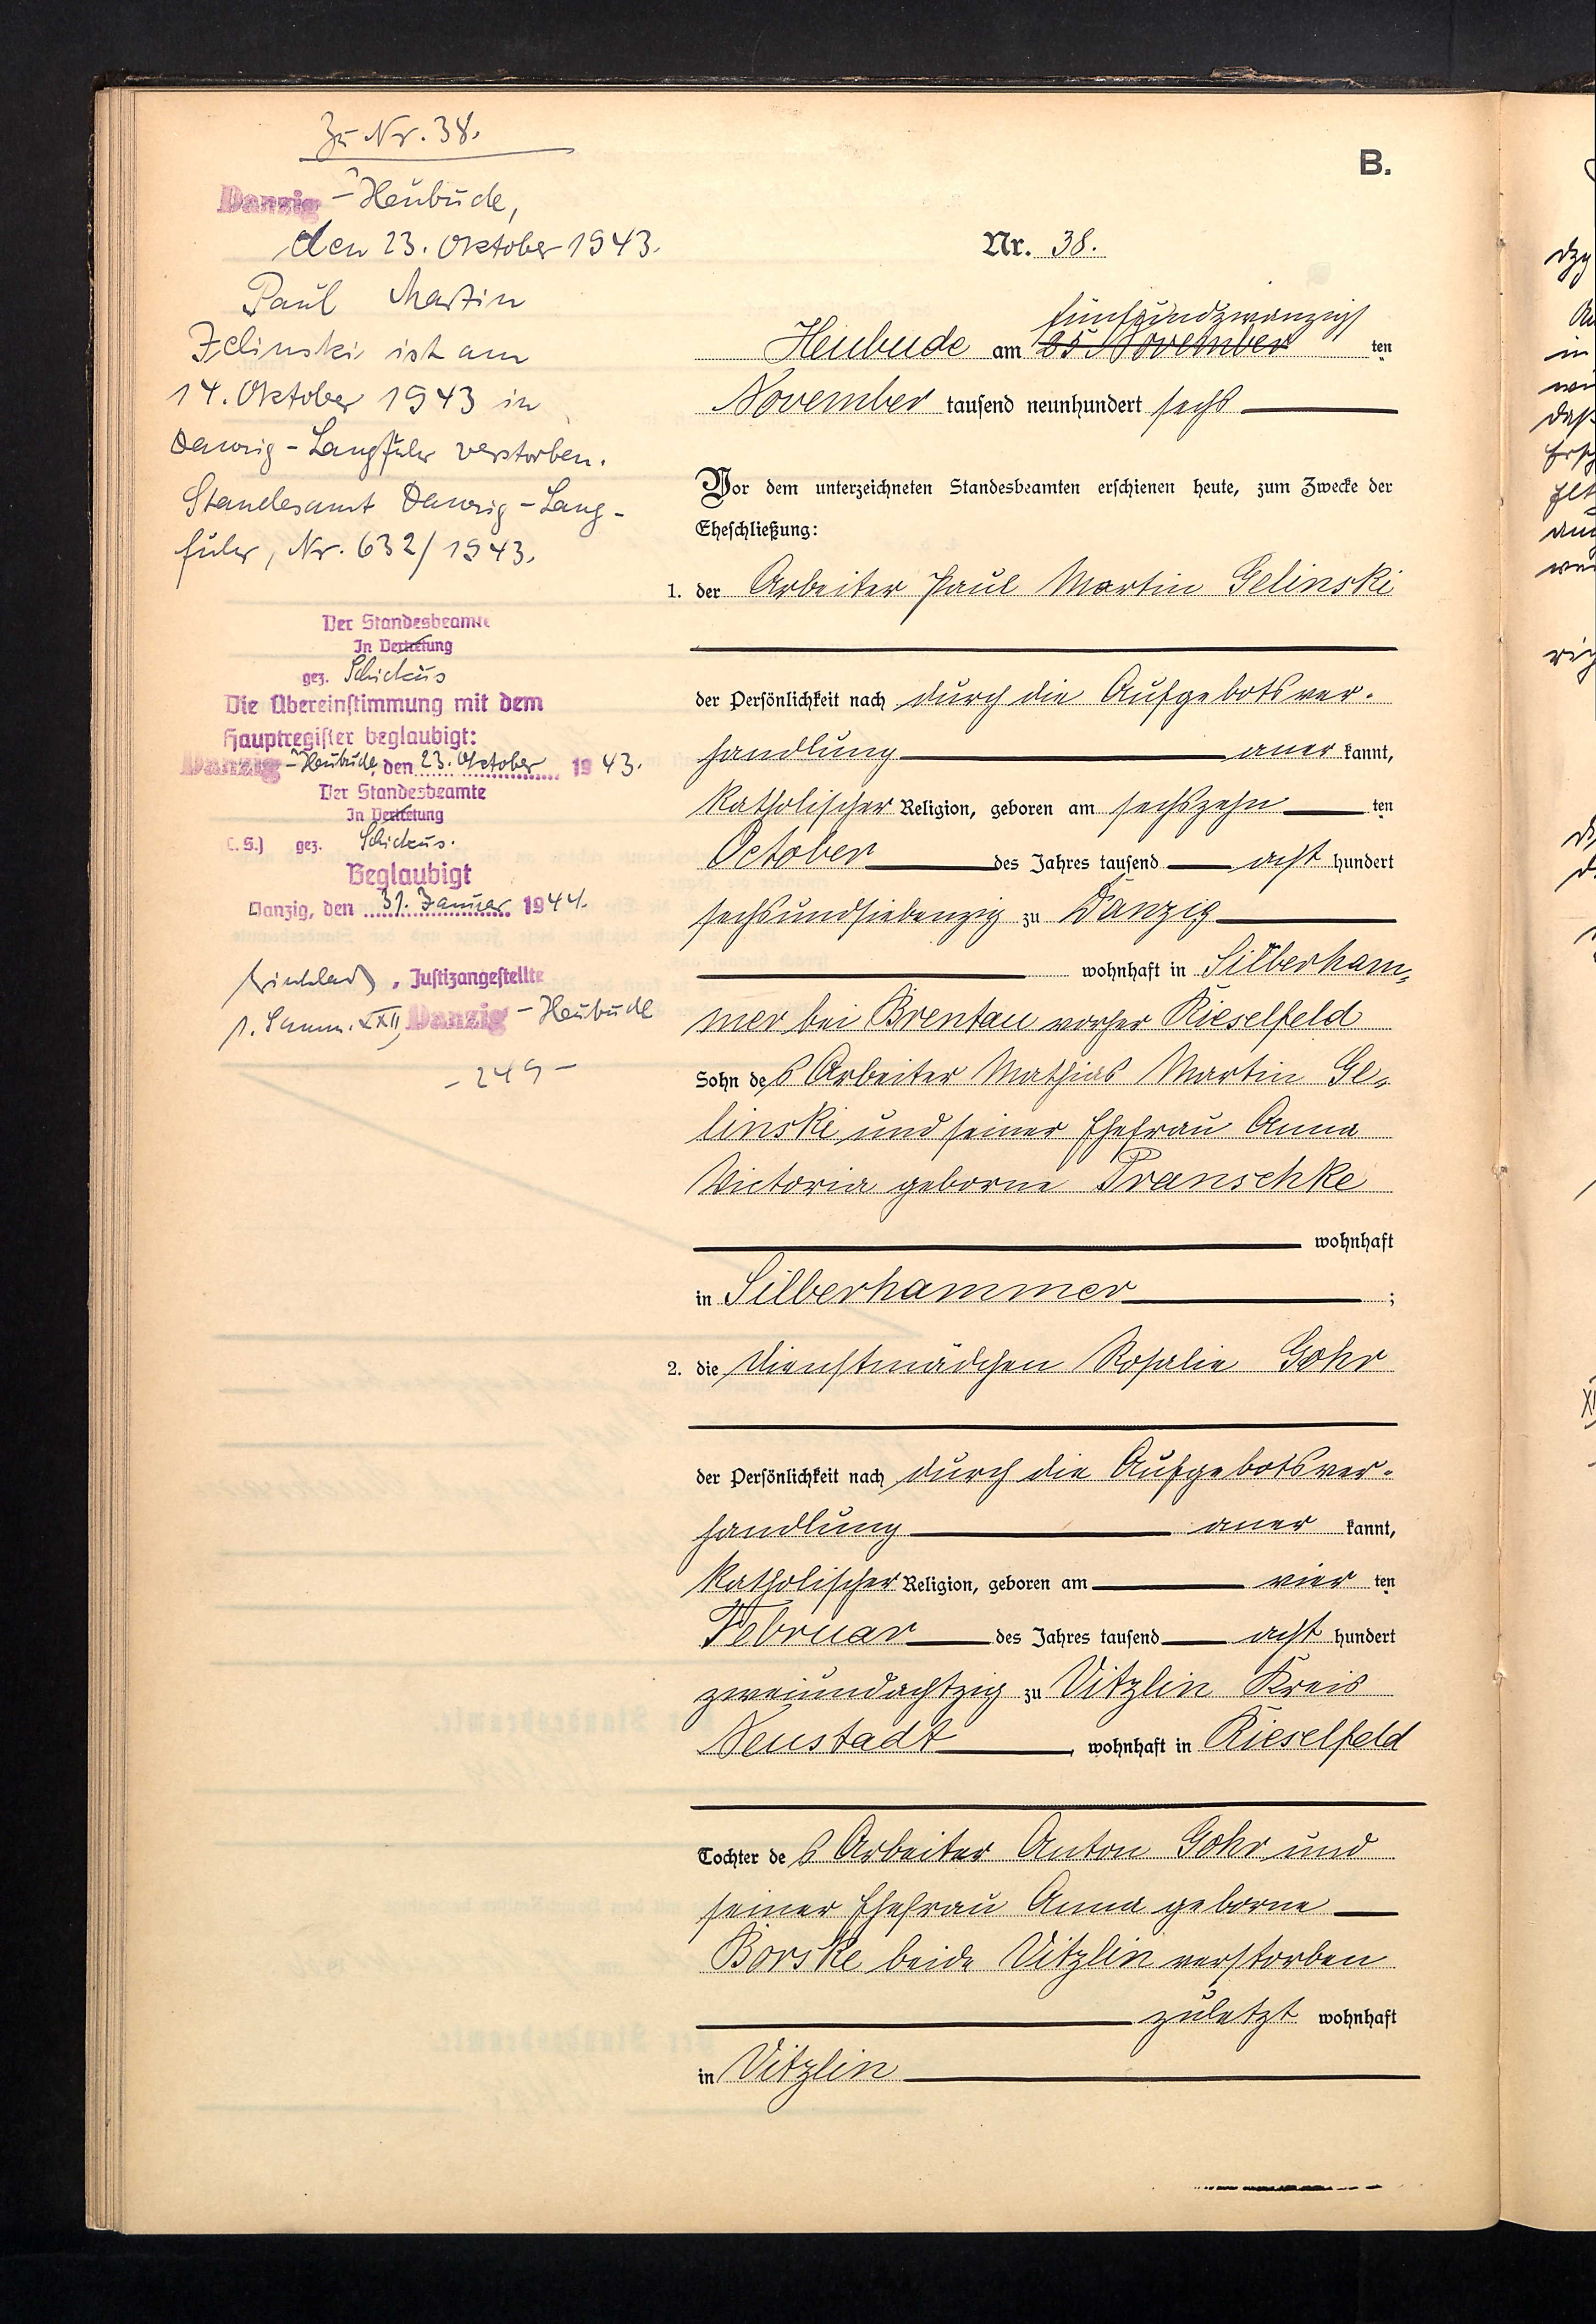 Zu Nr. 38.
Danzig - Heubude,
den 23. Oktober 1943.
Paul Martin
Zelinski ist am
14. Oktober 1943 in
Danzig-Langfuhr verstorben.
Standesamt Danzig-Lang-
fuhr, Nr. 632/1943.
Der Standesbeamte
In Vertretung
gez. Schickus
Die Übereinstimmung mit dem
Hauptregister beglaubigt:
Danzig - Heubude, den 23. Oktober 1943.
Der Standesbeamte
In Vertretung
(L. S.) gez. Schickus.
Beglaubigt
Danzig, den 31. Januar 1944.
, Justizangestellte
Danzig - Heubude
- 249 -
B.
Nr. 38.
fünfundzwanzigs
Heubude am 25 November ten
November tausend neunhundert sechs
Vor dem unterzeichneten Standesbeamten erschienen heute, zum Zwecke der
Eheschließung:
1. der Arbeiter Paul Martin Gelinski
der Persönlichkeit nach durch die Aufgebotsver-
handlung anerkannt,
katholischer Religion, geboren am sechszehn ten
October des Jahres tausend acht hundert
sechsundsiebenzig zu Danzig
wohnhaft in Silberham-
mer bei Brentau vorher Rieselfeld
Sohn des Arbeiter Mathias Martin Ge-
linski und seiner Ehefrau Anna
Victoria geborne Pranschke
wohnhaft
in Silberhammer ;
2. die Dienstmädchen Rosalie Gohr
der Persönlichkeit nach durch die Aufgebotsver-
handlung anerkannt,
katholischer Religion, geboren am vier ten
Februar des Jahres tausend acht hundert
zweiundachtzig zu Vitzlin Kreis
Neustadt , wohnhaft in Rieselfeld
Tochter des Arbeiter Anton Gohr und
seiner Ehefrau Anna geborne
Borske beide Vitzlin verstorben
zuletzt wohnhaft
in Vitzlin